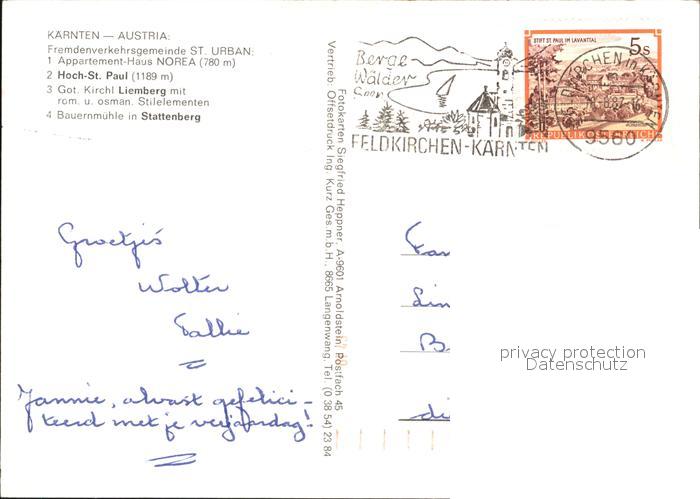 KÄRNTEN — AUSTRIA:
Fremdenverkehrsgemeinde ST. URBAN:
1 Appartement-Haus NOREA (780 m)
2 Hoch-St. Paul (1189 m)
3 Got. Kirchl Liemberg mit
rom. u. osman. Stilelementen
4 Bauernmühle in Stattenberg
Berge
Wälder
FELDKIRCHEN-KÄRNTEN
STIFT ST. PAUL IM LAVANTTAL
5s
REPUBLIK ÖSTERREICH
9560
Fotokarten Siegfried Heppner, A-9601 Arnoldstein, Postfach 45
Vertrieb: Offsetdruck Ing. Kurz Ges.m.b.H., 8665 Langenwang, Tel. (0 38 54) 23 84
Groetjes
Wolter
Jannie, alvast gefelici-
teerd met je verjaardag!
Fam
Lin
B
di
privacy protection
Datenschutz